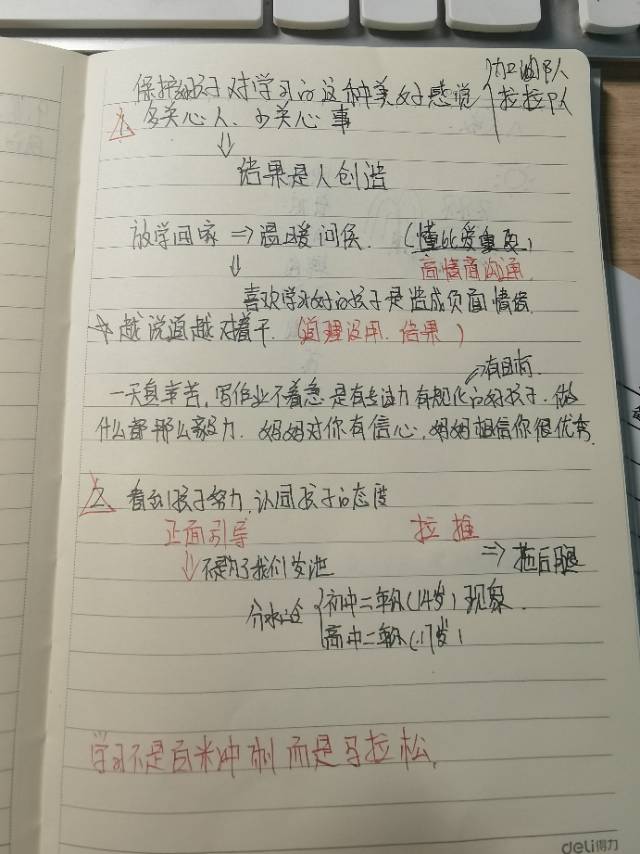 保护好孩子对学习的这种美好感觉 {加油队 拉拉队
1. 多关心人、少关心事
⇓
结果是人创造
放学回家 ⇒ 温暖问侯. (懂比爱重要)
⇓ 高情商沟通
喜欢学习好的孩子是造成负面情绪.
☆ 越说道越对着干. (道理没用. 结果)
→有目标.
一天真辛苦, 写作业不着急是有生活力有规化的好孩子. 做
什么都那么努力. 妈妈对你有信心, 妈妈相信你很优秀.
2. 看到孩子努力, 认同孩子的态度
正面引导 拉 推
⇓ 不是为了我们 ⇒ 拖后腿
分水岭 {初中二年级(14岁) 现象.
高中二年级(17岁)
学习不是百米冲刺而是马拉松.
deli得力